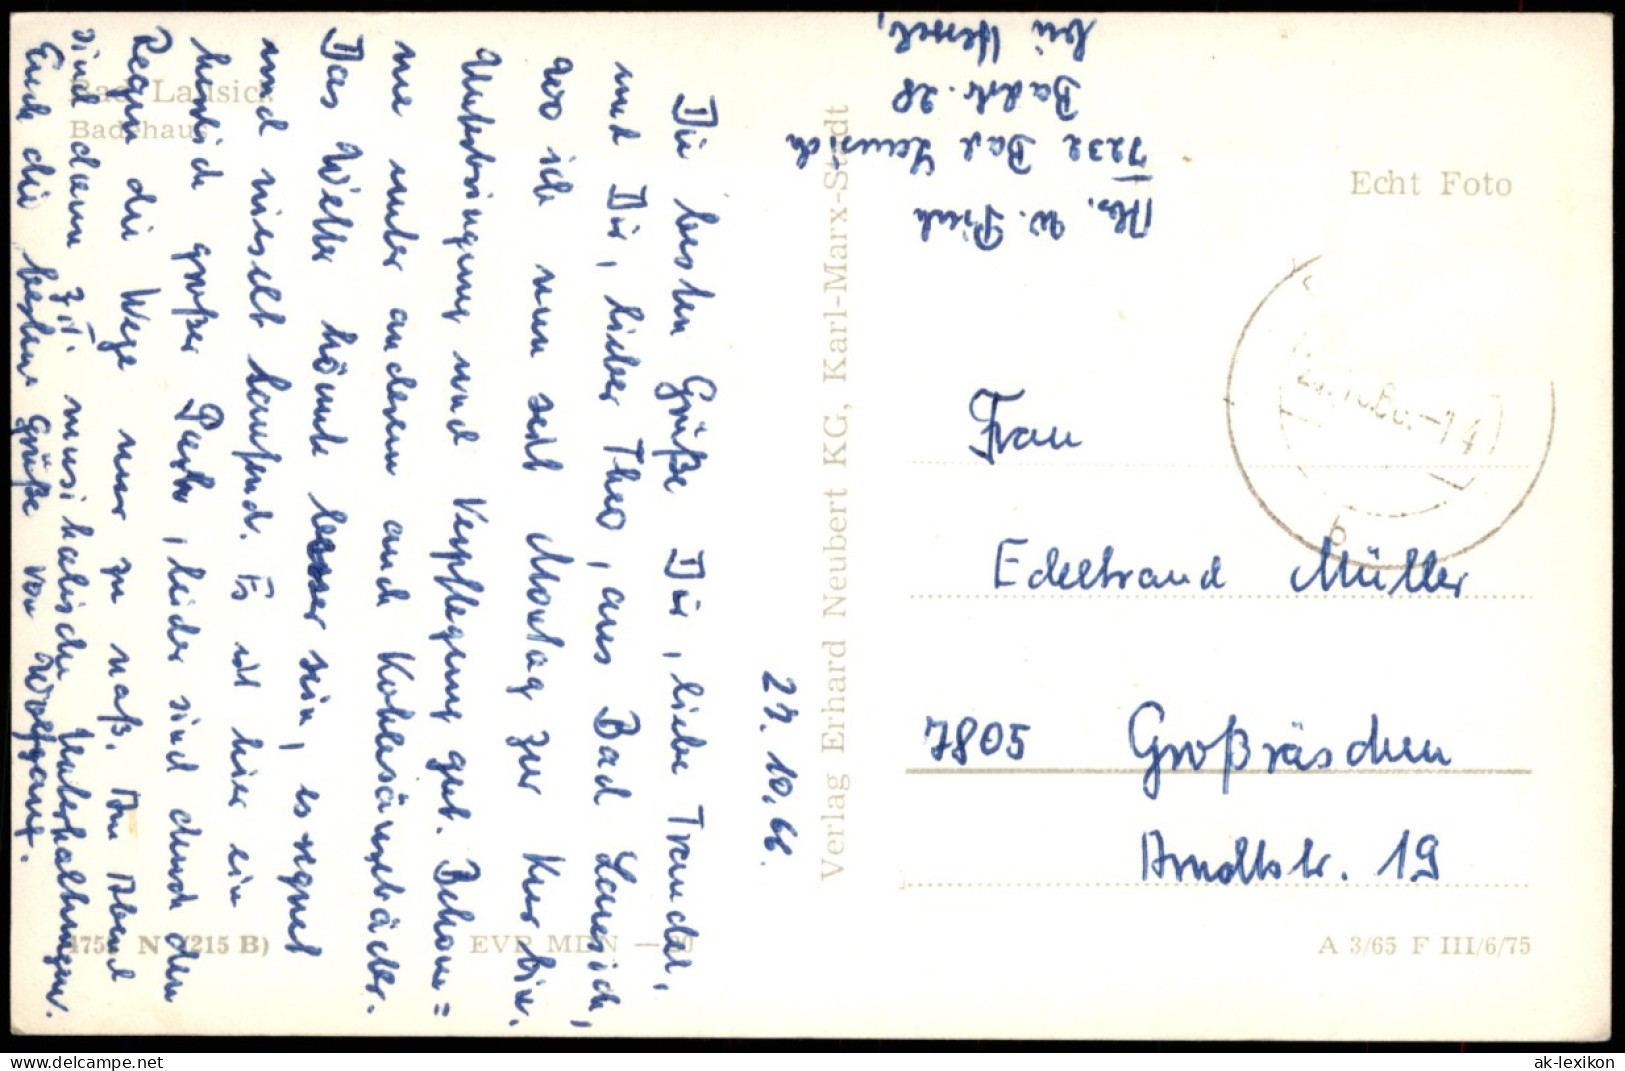 Bad Lausick
Badehaus
27. 10. 66.
Die besten Grüße Dir, liebe Traudel,
und Dir, lieber Theo, aus Bad Lausick,
wo ich nun seit Montag zur Kur bin.
Unterbringung und Verpflegung gut. Bekom=
me unter anderem auch Kohlesäurebäder.
Das Wetter könnte besser sein, es regnet
und nieselt laufend. Es ist hier ein
herrlich großer Park, leider sind durch den
Regen die Wege nur zu naß. Am Abend
sind dann z.T. musikalische Unterhaltungen.
Euch die besten Grüße von Wolfgang.
4758 N (215 B)
EVP MDN —.20
Verlag Erhard Neubert KG, Karl-Marx-Stadt
Abs. W.
7232 Bad Lausick
Badstr. 28
bei
Echt Foto
Frau
Edeltraud Müller
7805 Großräschen
Arndtstr. 19
A 3/65 F III/6/75
delcampe.net
ak-lexikon